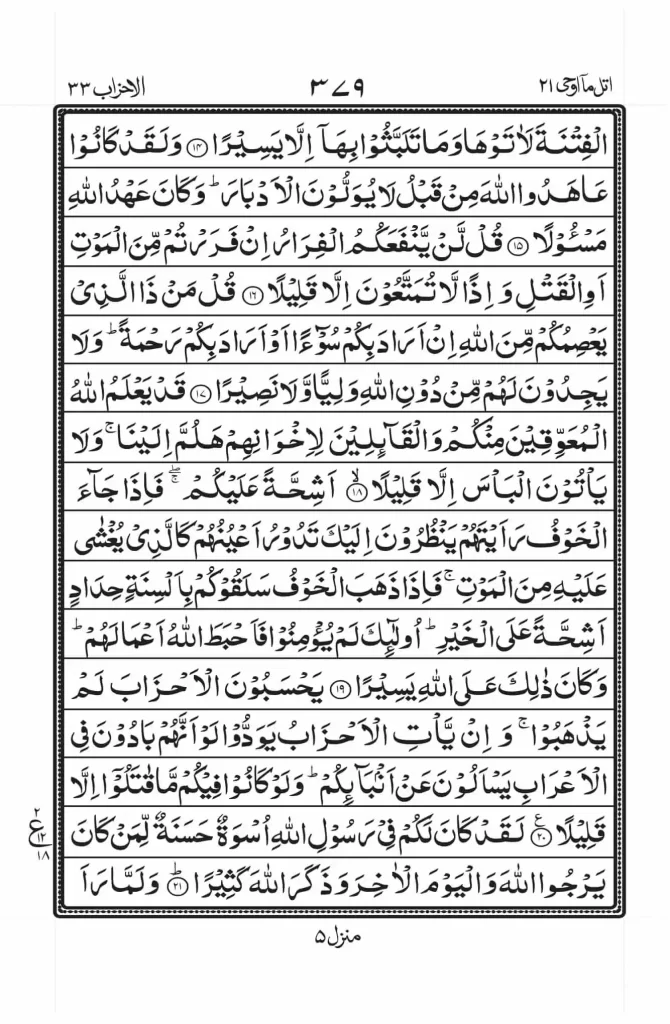 اتل مآاوحی ۲۱ ۳۷۹ الاحزاب ۳۳
الۡفِتۡنَةَ لَاٰتَوۡهَا وَمَا تَلَبَّثُوۡا بِهَاۤ اِلَّا يَسِيۡرًا ﴿۱۴﴾ وَلَقَدۡ كَانُوۡا
عَاهَدُوا اللّٰهَ مِنۡ قَبۡلُ لَا يُوَلُّوۡنَ الۡاَدۡبَارَ ؕ وَكَانَ عَهۡدُ اللّٰهِ
مَسۡـُٔوۡلًا ﴿۱۵﴾ قُلۡ لَّنۡ يَّنۡفَعَكُمُ الۡفِرَارُ اِنۡ فَرَرۡتُمۡ مِّنَ الۡمَوۡتِ
اَوِ الۡقَتۡلِ وَ اِذًا لَّا تُمَتَّعُوۡنَ اِلَّا قَلِيۡلًا ﴿۱۶﴾ قُلۡ مَنۡ ذَا الَّذِىۡ
يَعۡصِمُكُمۡ مِّنَ اللّٰهِ اِنۡ اَرَادَ بِكُمۡ سُوۡٓءًا اَوۡ اَرَادَ بِكُمۡ رَحۡمَةً ؕ وَلَا
يَجِدُوۡنَ لَهُمۡ مِّنۡ دُوۡنِ اللّٰهِ وَلِيًّا وَّلَا نَصِيۡرًا ﴿۱۷﴾ قَدۡ يَعۡلَمُ اللّٰهُ
الۡمُعَوِّقِيۡنَ مِنۡكُمۡ وَالۡقَآٮِٕلِيۡنَ لِاِخۡوَانِهِمۡ هَلُمَّ اِلَيۡنَا ۚ وَلَا
يَاۡتُوۡنَ الۡبَاۡسَ اِلَّا قَلِيۡلًا ۙ﴿۱۸﴾ اَشِحَّةً عَلَيۡكُمۡ ۖۚ فَاِذَا جَآءَ
الۡخَوۡفُ رَاَيۡتَهُمۡ يَنۡظُرُوۡنَ اِلَيۡكَ تَدُوۡرُ اَعۡيُنُهُمۡ كَالَّذِىۡ يُغۡشٰى
عَلَيۡهِ مِنَ الۡمَوۡتِ ۚ فَاِذَا ذَهَبَ الۡخَوۡفُ سَلَقُوۡكُمۡ بِاَلۡسِنَةٍ حِدَادٍ
اَشِحَّةً عَلَى الۡخَيۡرِ ؕ اُولٰٓٮِٕكَ لَمۡ يُؤۡمِنُوۡا فَاَحۡبَطَ اللّٰهُ اَعۡمَالَهُمۡ ؕ
وَكَانَ ذٰلِكَ عَلَى اللّٰهِ يَسِيۡرًا ﴿۱۹﴾ يَحۡسَبُوۡنَ الۡاَحۡزَابَ لَمۡ
يَذۡهَبُوۡا ۚ وَ اِنۡ يَّاۡتِ الۡاَحۡزَابُ يَوَدُّوۡا لَوۡ اَنَّهُمۡ بَادُوۡنَ فِى
الۡاَعۡرَابِ يَسۡاَلُوۡنَ عَنۡ اَنۡۢبَآٮِٕكُمۡ ؕ وَلَوۡ كَانُوۡا فِيۡكُمۡ مَّا قٰتَلُوۡۤا اِلَّا
قَلِيۡلًا ﴿۲۰﴾ۧ لَقَدۡ كَانَ لَكُمۡ فِىۡ رَسُوۡلِ اللّٰهِ اُسۡوَةٌ حَسَنَةٌ لِّمَنۡ كَانَ
۲ ع ۱۲ ۱۸
يَرۡجُوا اللّٰهَ وَالۡيَوۡمَ الۡاٰخِرَ وَذَكَرَ اللّٰهَ كَثِيۡرًا ؕ﴿۲۱﴾ وَلَمَّا رَاَ
منزل ۵